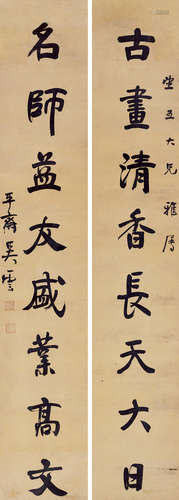 古畫清香長天大日
堂五大兄雅屬
名師益友盛業高文
平齋吳雲